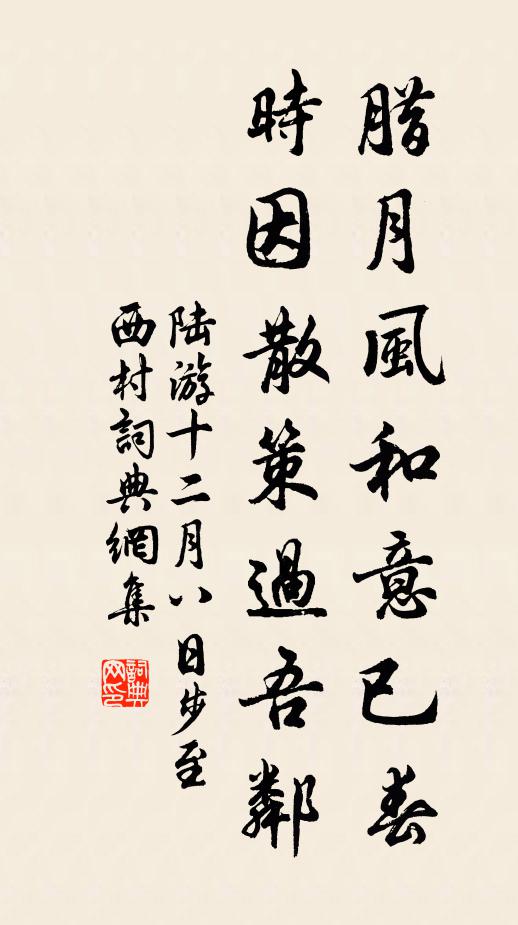 腊月風和意已春
時因散策過吾鄰
陸游十二月八日步至
西村詞典網集
詞典网印